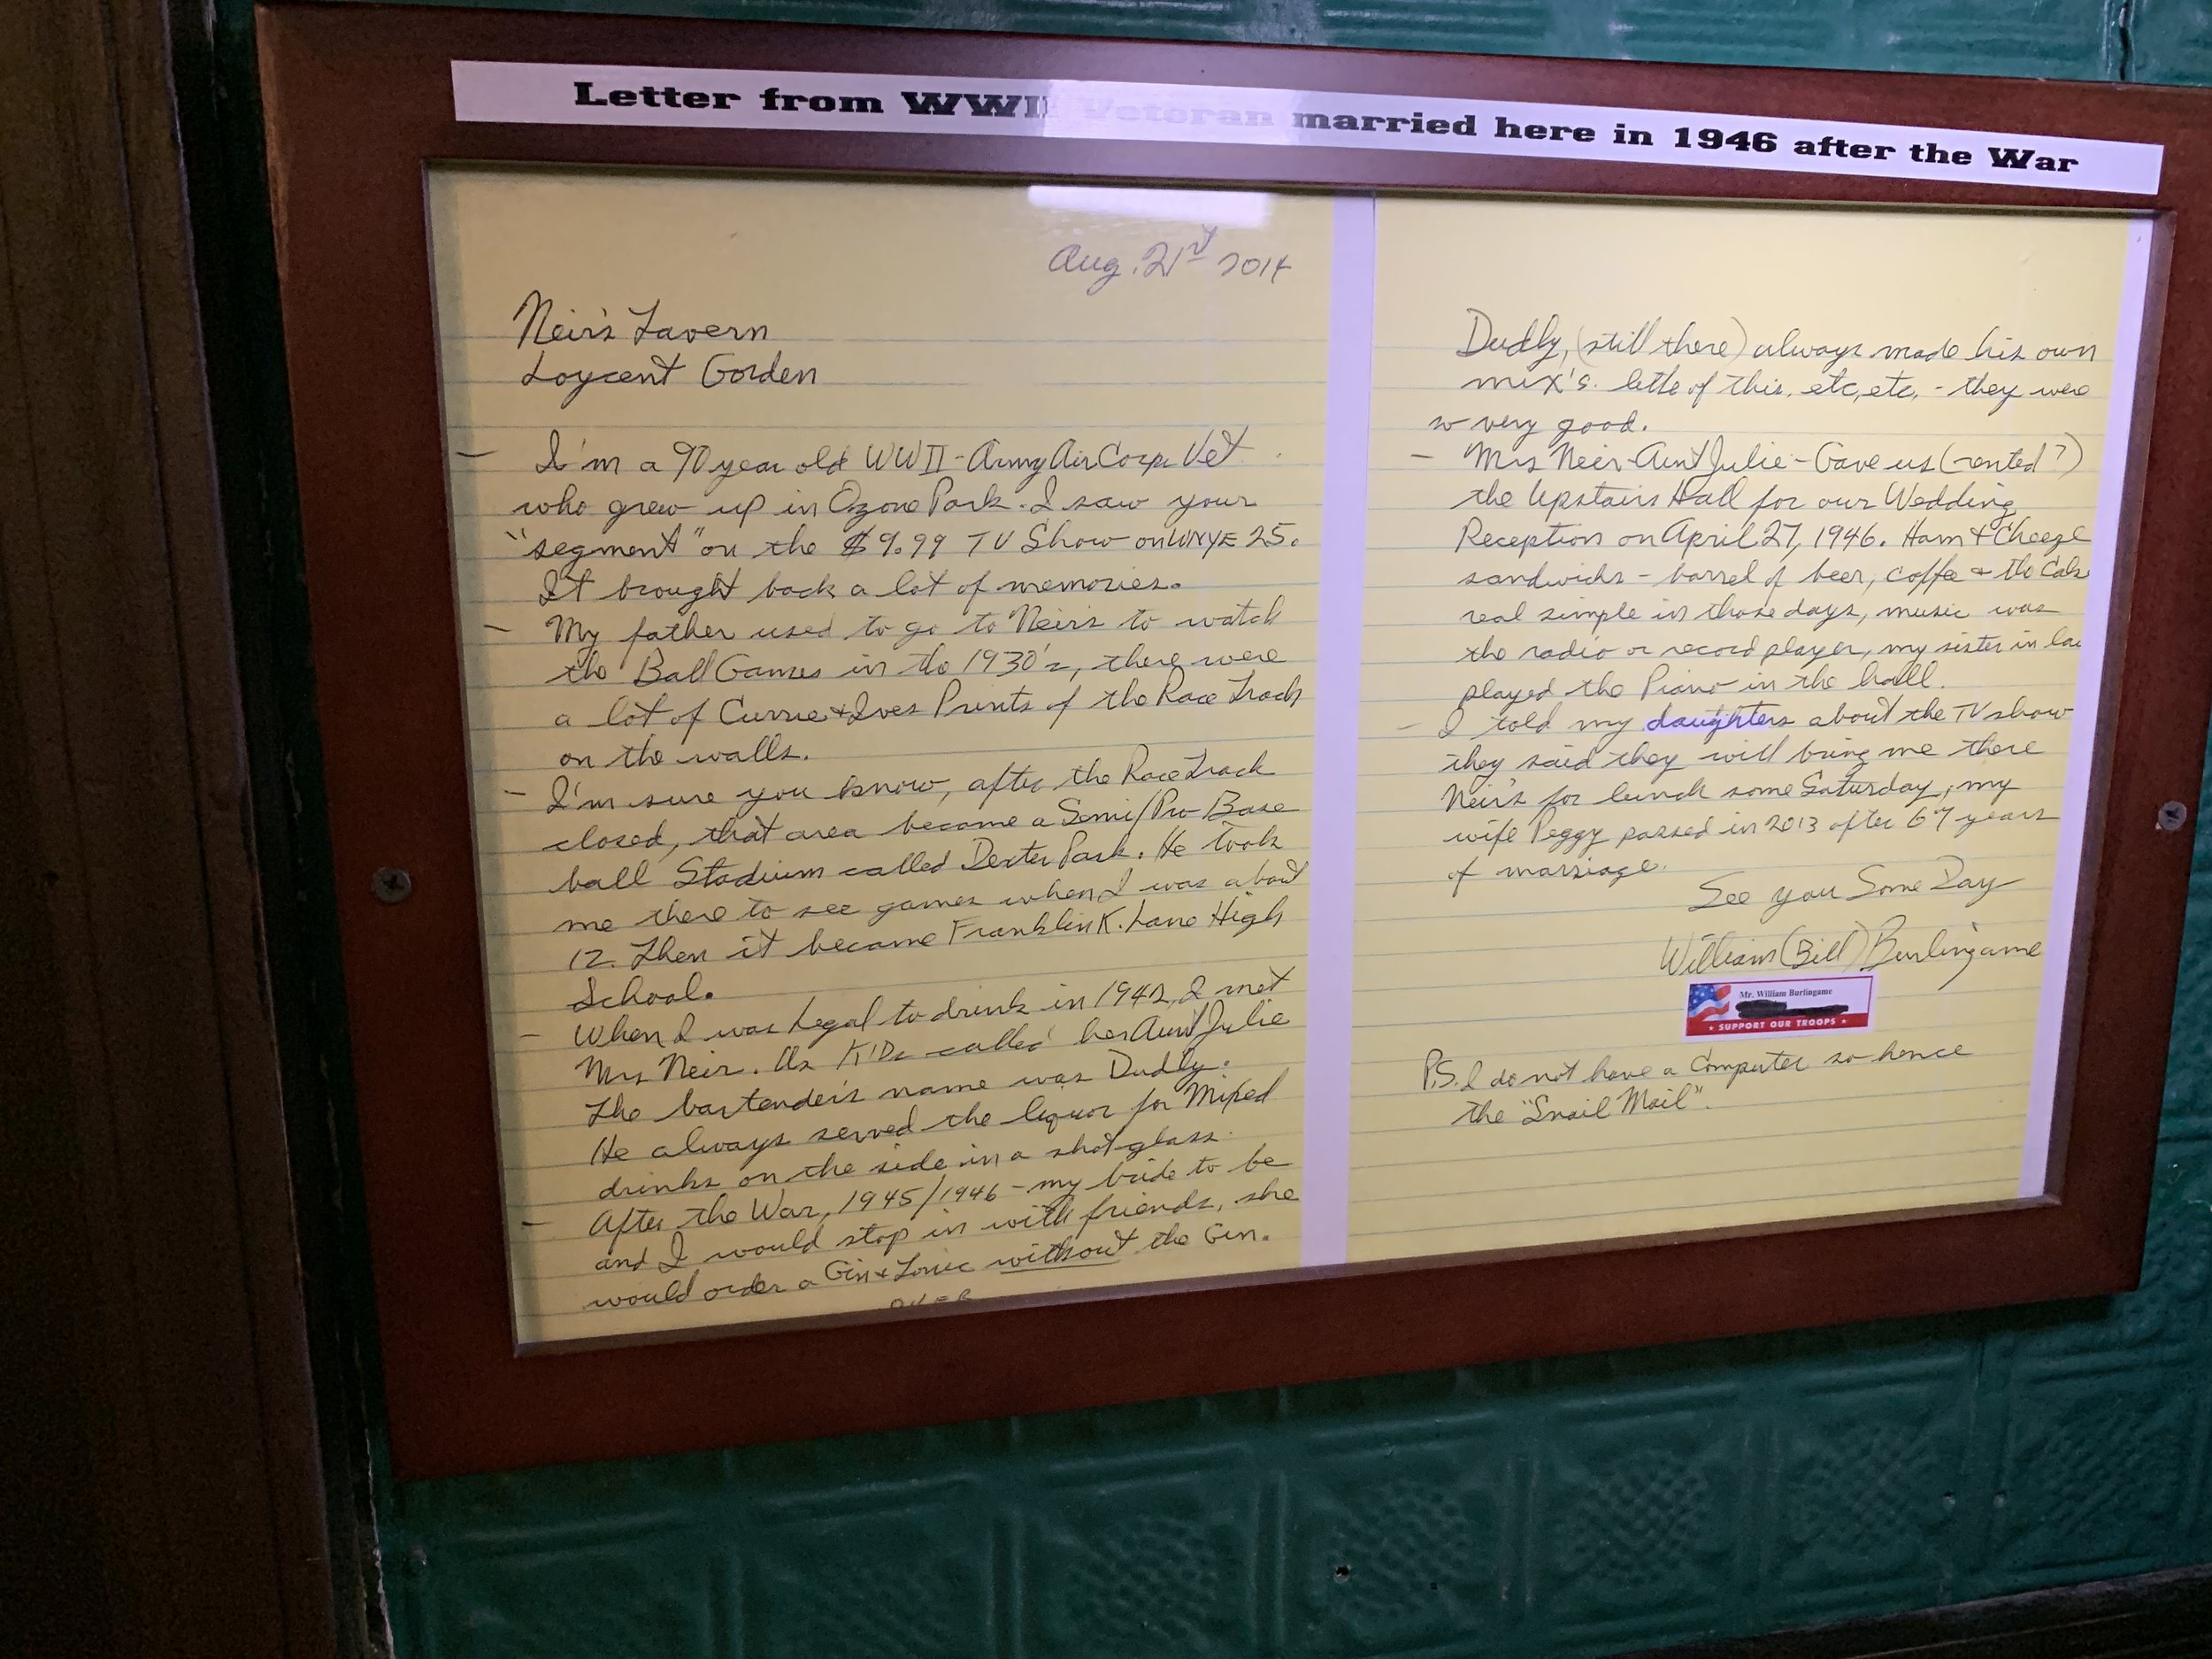 Letter from WWII Veteran married here in 1946 after the War
Aug. 21st 2014
Neir's Tavern
Loycent Gorden
- I'm a 90 year old WWII-Army Air Corps Vet
who grew up in Ozone Park. I saw your
"segment" on the $9.99 TV Show on WNYE 25.
It brought back a lot of memories.
- My father used to go to Neirs to watch
the Ball Games in the 1930's, there were
a lot of Currie & Ives Prints of the Race Track
on the walls.
- I'm sure you know, after the Race Track
closed, that area became a Semi/Pro Base
ball Stadium called Dexter Park. He took
me there to see games when I was about
12. Then it became Franklin K. Lane High
School.
- When I was Legal to drink in 1942, I met
Mrs Neir. As KIDs called her Aunt Julie
The bartender's name was Dudly.
He always served the liquor for Mixed
drinks on the side in a shot glass.
- After the War, 1945/1946 - my bride to be
and I would stop in with friends, she
would order a Gin & Tonic without the Gin.
OVER
Dudly, (still there) always made his own
mix's. little of this, etc, etc, - they were
so very good.
- Mrs Neir-Aunt Julie - Gave us (rented?)
the Upstairs Hall for our Wedding
Reception on April 27, 1946. Ham & Cheese
sandwichs - barrel of beer, coffee & the Cake
real simple in those days, music was
the radio or record player, my sister in law
played the Piano in the hall.
- I told my daughters about the TV show
they said they will bring me there
Neir's for lunch some Saturday, my
wife Peggy passed in 2013 after 67 years
of marriage.
See you Some Day
William (Bill) Burlingame
Mr. William Burlingame
★ SUPPORT OUR TROOPS ★
P.S. I do not have a Computer so hence
the "Snail Mail".